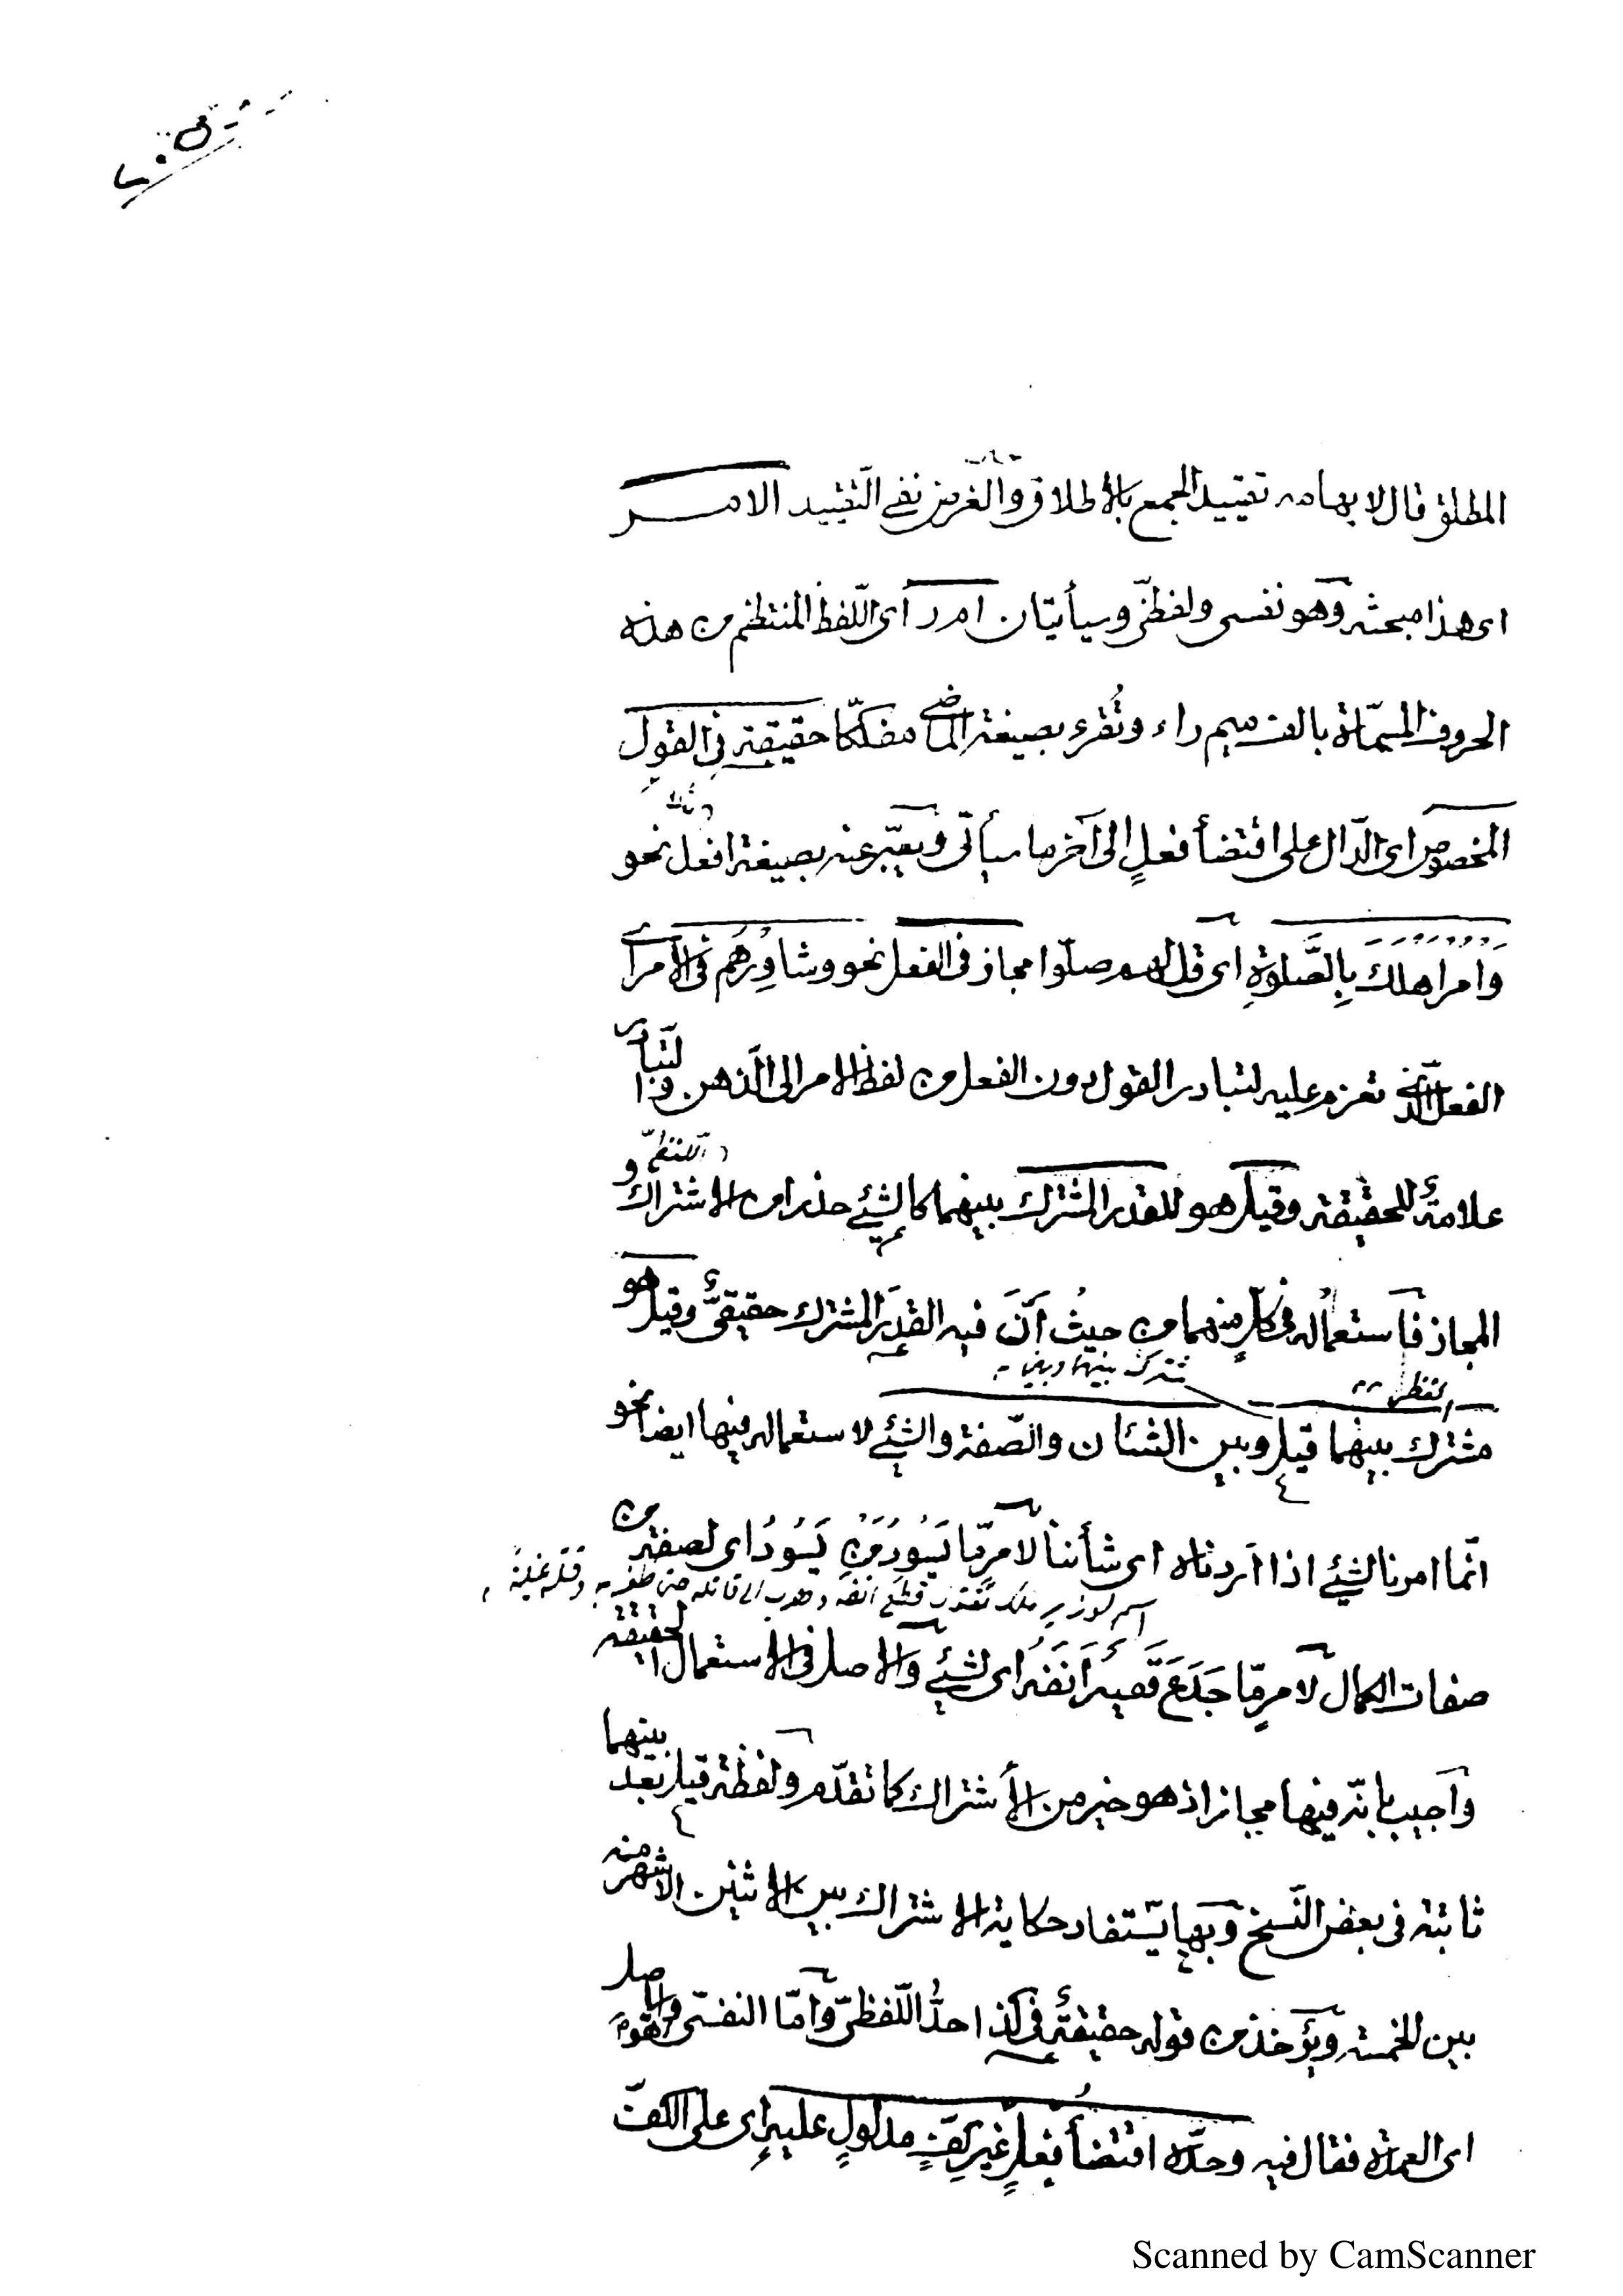 المطلق قال لابهامه تقييد الجمع بالاطلاق والغرض نفي التقييد الامر
اى هذا مبحثه وهو نفسى ولفظىّ وسيأتيان ا م ر اى اللّفظ المنتظم من هذه
الحروف المسمّاة بالف ميم راء وتُقرء بصيغة الماضى مفكّكا حقيقة فى القول
المخصوص اى الدّال على اقتضأ فعلٍ الى آخر ما سيأتى ويعبّر عنه بصيغة افعل نحو
وَأمر اهلك بِالصَّلوةِ اى قل لهم صلّوا مجاز فى الفعل نحو وشاوِرْهُم فى الأمر أى
الفعل الّذى تعزم عليه لتبادر القول دون الفعل من لفظ الامر الى الذّهن والتّبادر
اللفظىّ
علامةٌ للحقيقة وقيل هو للقدر المشترك بينهما كالشيئ حذرا من الاشتراك و
المجاز فاستعماله فى كلّ منهما من حيثُ أنّ فيه القدرَ المشترك حقيقىٌّ وقيل هو
مشترك بينهما وبين
مشترك بينهما قيل وبين الشئان والصّفة والشيئ لاستعماله فيها ايضا نحو
انّما امرنا لشيئ اذا اردناه اى شأننا لامرٍ مّا يَسُودُ مَن يَسُودُ اى لصفة من
صفات الكمال لامرٍ مّا جَدَعَ قَصِيرٌ اَنفَه اى لشيئ والاصل فى الاستعمال الحقيقة
واجيب بانّه فيها مجاز اذ هو خير من الأشتراك كما تقدّم ولفظة قيل بعد بينهما
ثابتة فى بعض النّسخ وبها يستفاد حكاية الاشتراك بين الاثنين الاشهر منه
بين الخمسة ويؤخذ من قوله حقيقةٌ فى كذا حدُّ اللّفظىّ وامّا النفسّى وهو الاصل
اى العمدة فقال فيه وحدّه اقتضأ فعلٍ غيرِ كفٍّ مدلولٍ عليه اى على الكفّ
Scanned by CamScanner